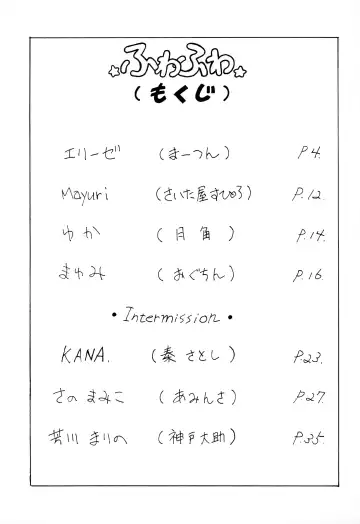 ふわふわ
(もくじ)
エリーゼ (まーつん) P.4.
Mayuri (さいた屋すひろ) P.12.
ゆか (月角) P.14.
まゆみ (おぐちん) P.16.
・Intermission・
KANA. (秦 さとし) P.23.
さの まみこ (あみんさ) P.27.
芳川 まりの (神戸大助) P.35.